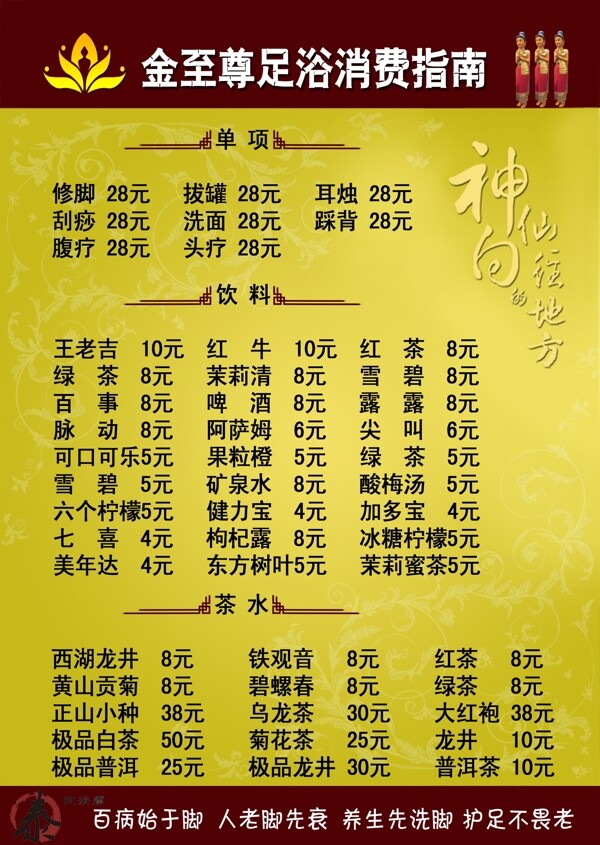 金至尊足浴消费指南
单 项
修脚 28元 拔罐 28元 耳烛 28元
刮痧 28元 洗面 28元 踩背 28元
腹疗 28元 头疗 28元
神仙向往的地方
饮 料
王老吉 10元 红 牛 10元 红 茶 8元
绿 茶 8元 茉莉清 8元 雪 碧 8元
百 事 8元 啤 酒 8元 露 露 8元
脉 动 8元 阿萨姆 6元 尖 叫 6元
可口可乐5元 果粒橙 5元 绿 茶 5元
雪 碧 5元 矿泉水 8元 酸梅汤 5元
六个柠檬5元 健力宝 4元 加多宝 4元
七 喜 4元 枸杞露 8元 冰糖柠檬5元
美年达 4元 东方树叶5元 茉莉蜜茶5元
茶 水
西湖龙井 8元 铁观音 8元 红茶 8元
黄山贡菊 8元 碧螺春 8元 绿茶 8元
正山小种 38元 乌龙茶 30元 大红袍 38元
极品白茶 50元 菊花茶 25元 龙井 10元
极品普洱 25元 极品龙井 30元 普洱茶 10元
百病始于脚 人老脚先衰 养生先洗脚 护足不畏老